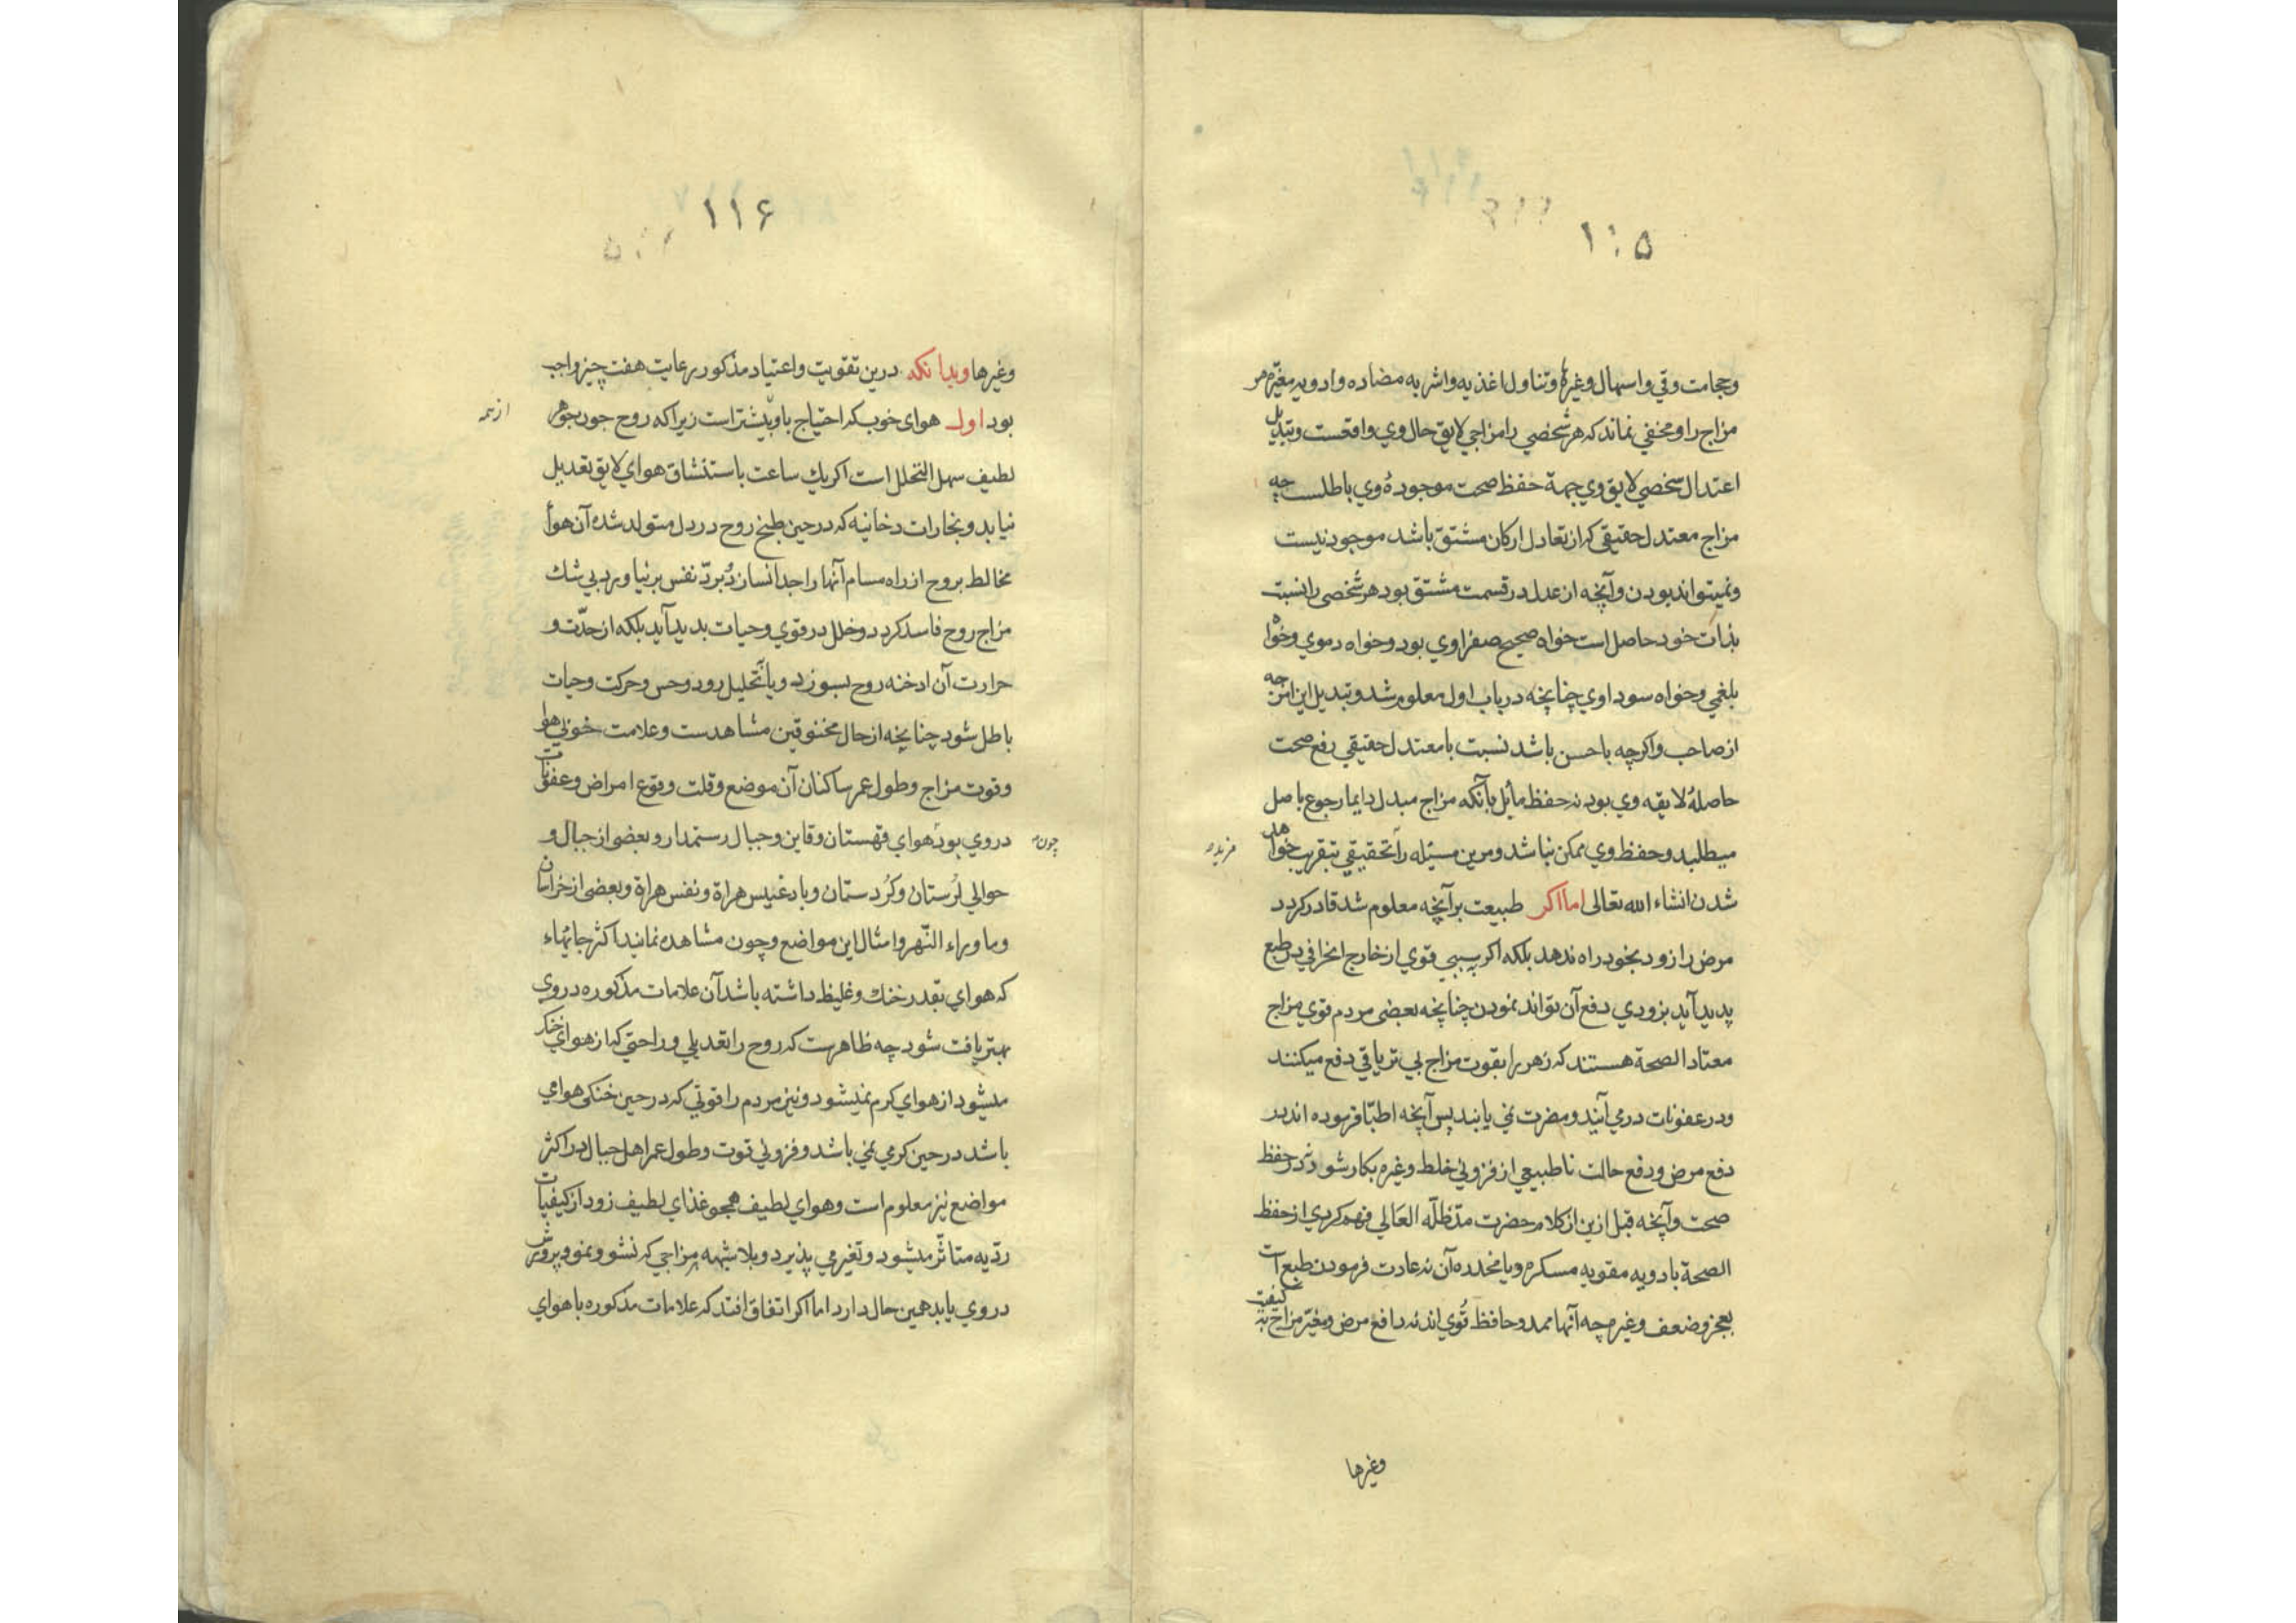 ۱۱۵
وحجامت وقي واسهال وغيره وتناول اغذيه واشربه مضاده وادويه مغيّره هر
مزاج را ومخفي نماند كه هر شخصي را مزاجي لايق حال وي واقعست وتبديل
اعتدال شخصي لايق وي جهة حفظ صحت موجوده وي باطلست چه
مزاج معتدل حقيقي كه از تعادل اركان مشتق باشد موجود نيست
ونميتواند بودن وآنچه از عدل در قسمت مشتق بود هر شخصي را نسبت
بذات خود حاصل است خواه صحيح صفراوي بود وخواه دموي وخواه
بلغمي وخواه سوداوي چنانچه در باب اول معلوم شد وتبديل اين امزجه
از صاحب واكرچه باحسن باشد نسبت با معتدل حقيقي رفع صحت
حاصلهٔ لايقه وي بود نه حفظ مأيل بآنكه مزاج مبدل دايما رجوع باصل
ميطلبد وحفظ وي ممكن نباشد ومرين مسئله را تحقيقي بتقريب خواهد
شدن انشاء الله تعالى اما اكر طبيعت برآنچه معلوم شد قادر كردد
مرض را زود بخود راه ندهد بلكه اكر بسببي قوي از خارج انحرافي در طبع
پديد آيد بزودي دفع آن تواند نمودن چنانچه بعضى مردم قوي مزاج
معتاد الصحة هستند كه زهر را بقوت مزاج بي ترياقي دفع ميكنند
ودر عفونات درمي آيند ومضرت نمي يابند پس آنچه اطبّا فرموده اند در
دفع مرض ودفع حالت ناطبيعي از فزوني خلط وغيره بكار شود نه در حفظ
صحت وآنچه قبل ازين از كلام حضرت مدّ ظلّه العَالي فهم كردي از حفظ
الصحة بادويه مقويه مسكره ويا مخدره آن نه عادت فرمودن طبع است
بعجز وضعف وغيره چه آنها ممد وحافظ قُوي اند نه دافع مرض ومغيّر مزاج به كيفيت
وغيرها
۱۱۶
وغيرها وبدانكه درين تقويت واعتياد مذكور رعايت هفت چيز واجب
بود اول هواى خوب كه احتياج باو بيشتر است زيرا كه روح چون جوهر
از همه
لطيف سهل التحلل است اكر يك ساعت باستنشاق هواي لايق تعديل
نيابد وبخارات دخانيه كه در حين طبخ روح در دل متولد شده آن هوأ
مخالط بروح از راه مسام آنها را جدا نسازد وُبردّ نفس برنياورد بي شك
مزاج روح فاسد كردد وخلل در قوي وحيات پديد آيد بلكه از حدّت و
حرارت آن ادخنه روح بسوزد ويا بتحليل رود وحس وحركت وحيات
باطل شود چنانچه از حال مخنوقين مشاهدست وعلامت خوبي هوا
وقوت مزاج وطول عمر ساكنان آن موضع وقلت وقوع امراض وعفونات
دروي بود هواي قهستان وقاين وجبال رستمدار وبعضى از جبال و
چون
حوالي لرُستان وكُردستان وبادغيس هراة ونفس هراة وبعضى از خراسان
وما وراء النّهر وامثال اين مواضع وچون مشاهده نمايند اكثر جايهاء
كه هواي بقدر خنك وغليظ داشته باشد آن علامات مذكوره دروي
بهتر يافت شود چه ظاهرست كه روح را تعديلي وراحتي كه از هواي خنك
ميشود از هواي كرم نميشود ونيز مردم را قوتي كه در حين خنكى هوامي
باشد در حين كرمي نمي باشد وفزوني قوت وطول عمر اهل جبال در اكثر
مواضع نيز معلوم است وهواي لطيف همچو غذاي لطيف زود از كيفيات
رديّه متاثّر ميشود وتغير مي پذيرد وبلا شبهه مزاجي كه نشو ونمو وپرورش
دروي يابد همين حال دارد اما اكر اتفاق افتد كه علامات مذكوره با هواي